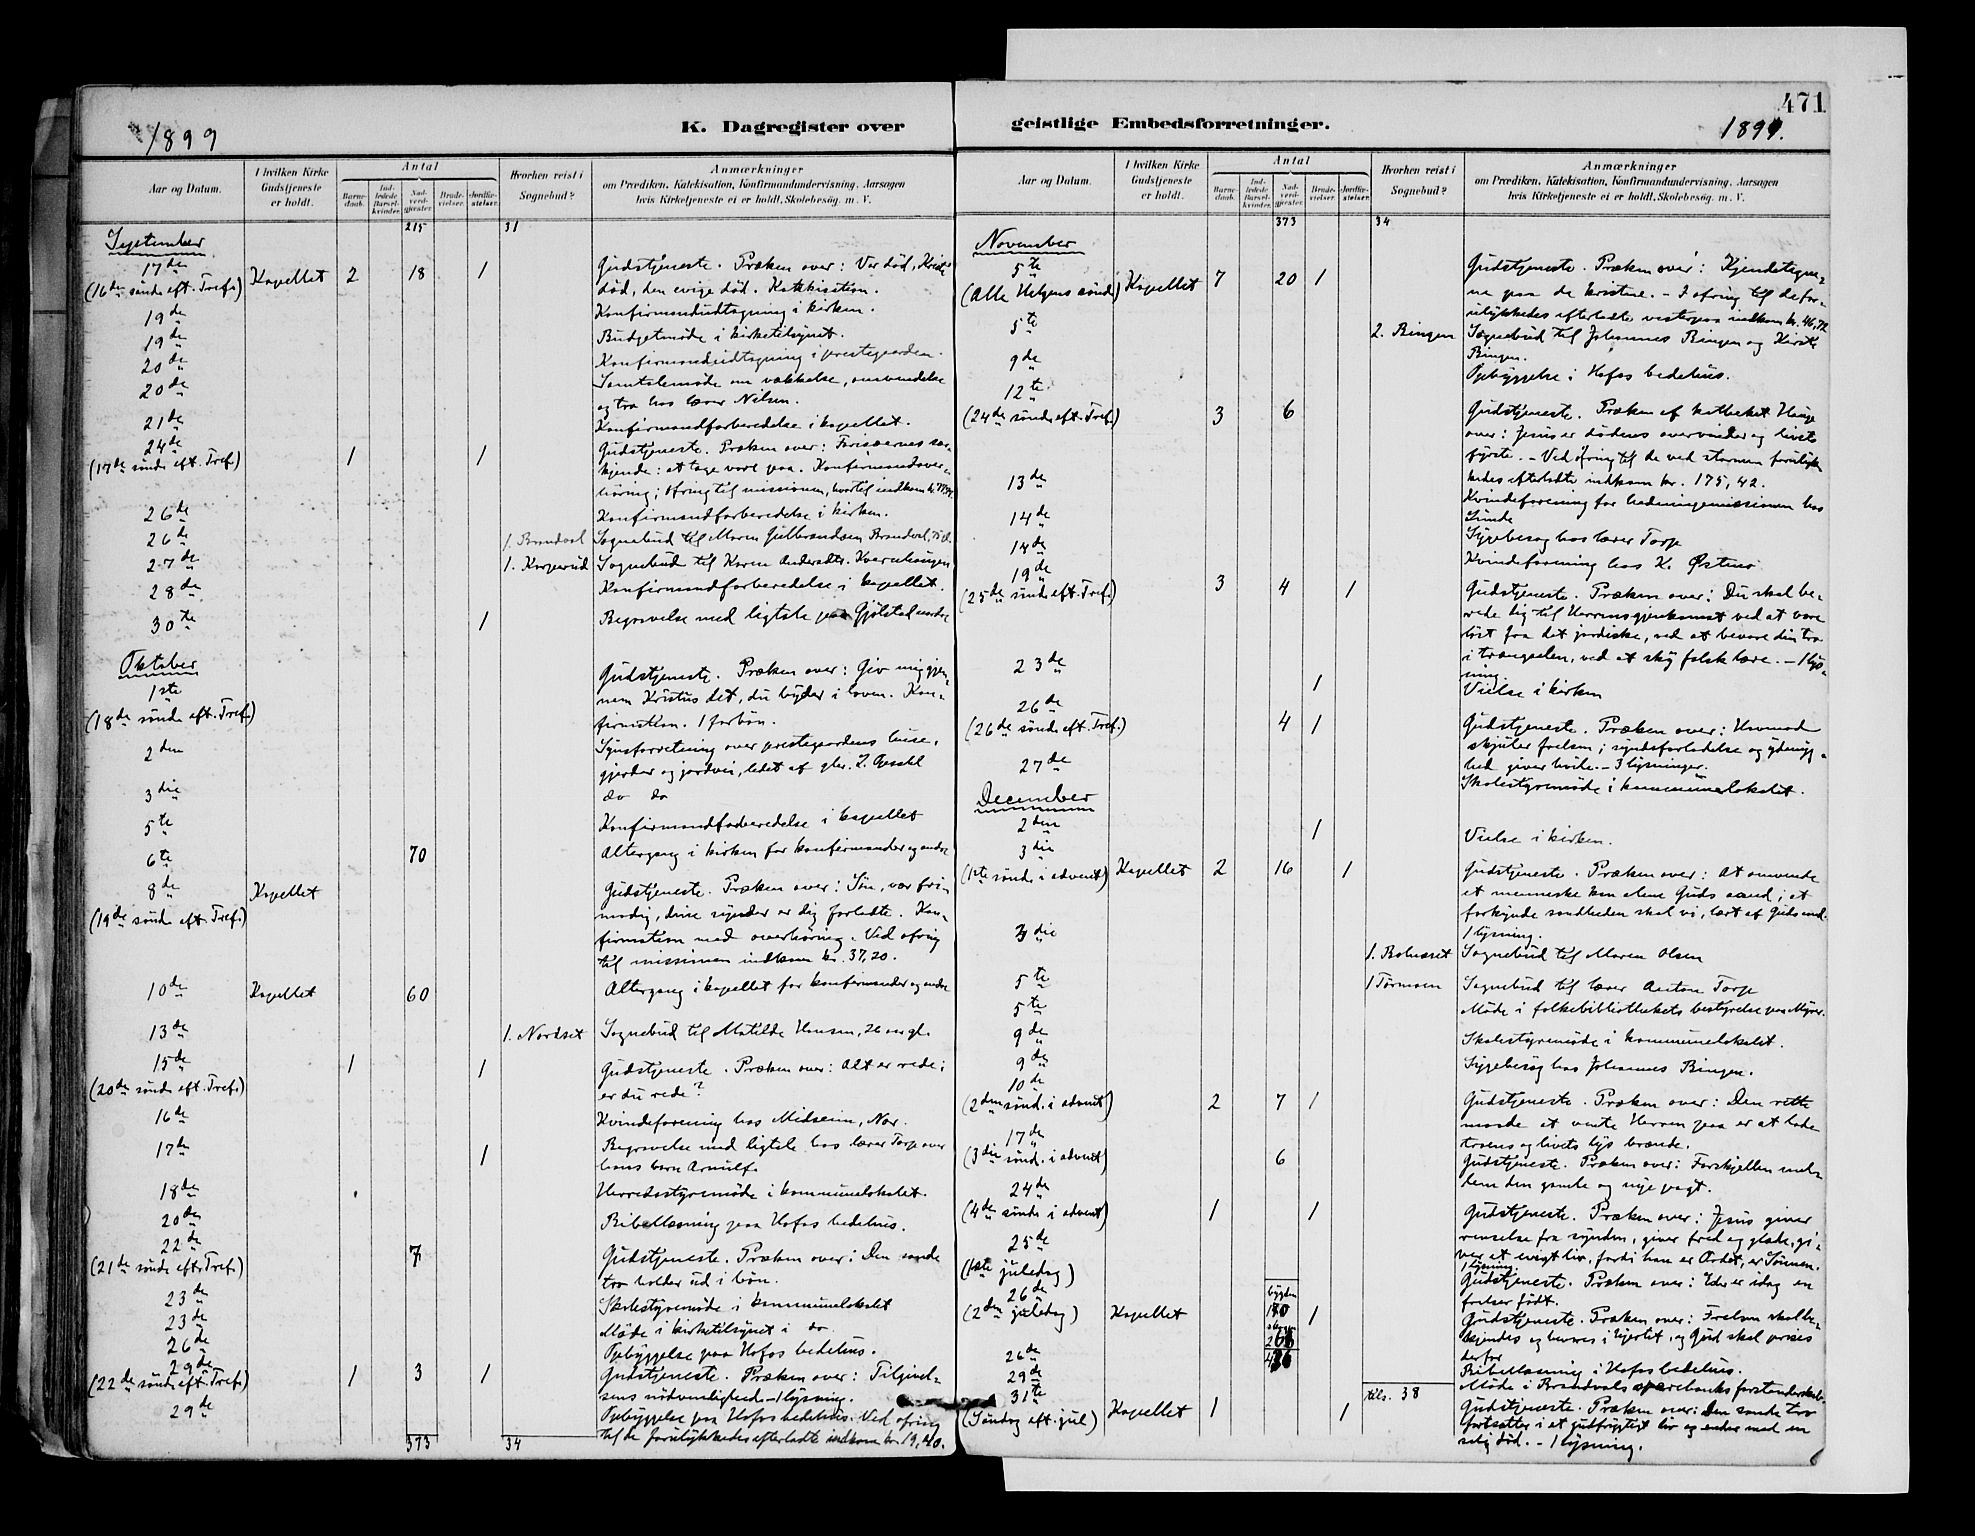 471
1899
K. Dagregister over
Aar og Datum.
I hvilken Kirke Gudstjeneste er holdt.
Antal
Barne-daab.
Ind-ledede Barsel-kvinder.
Nad-verd-gjester.
Brude-vielser.
Jordfæ-stelser.
Hvorhen reist i Sognebud?
Anmærkninger
om Prædiken, Katekisation, Konfirmandundervisning, Aarsagen
hvis Kirketjeneste ei er holdt, Skolebesøg, m. V.
215 31
September
17de Gudstjeneste. Præken over: Vor død, Kristi
(16de sønd. eft. Tref.) Kapellet 2 18 1 død, den evige død. Katekisation.
19de Konfirmandudtagning i kirken.
19de Budgetmøde i kirketilsynet.
20de Konfirmandudtagning i prestegaarden.
20de Samtalemøde om vækkelse, omvendelse
og tro hos lærer Nilsen.
21de Konfirmandforberedelse i kapellet.
24de Gudstjeneste. Præken over: Farisæernes
(17de sønd. eft. Tref.) 1 1 kjende: at tage vare paa. Konfirmandover-
høring; ofring til missionen, hvortil indkom kr.
26de Konfirmandforberedelse i kirken.
26de 1. Brandval Sognebud til Maren Gulbrandsen Brandval,
27de 1. Korperud Sognebud til Karen Andersdtr. Kværnhaugen
28de Konfirmandforberedelse i kapellet.
30te 1 Begravelse med ligtale paa Gjølstad nordre
Oktober
1ste Gudstjeneste. Præken over: Giv mig gjen-
nem Kristus det, du byder i loven. Kon-
(18de sønd. eft. Tref.) firmation. 1 forbøn.
2den Synsforretning over prestegaardens huse,
gjerder og jordvei, ledet af
3die do do
5te Konfirmandforberedelse i kapellet
6te 70 Altergang i kirken for konfirmander og andre
8de Kapellet Gudstjeneste. Præken over: Søn, vær fri-
(19de sønd. eft. Tref.) modig, dine synder er dig forladte. Kon-
firmation med overhøring. Ved ofring
til missionen indkom kr. 37,20.
10de Kapellet 60 Altergang i kapellet for konfirmander og andre
13de 1. Nordset Sognebud til Matilde Hansen, 26 aar gl.
15de 1 1 Gudstjeneste. Præken over: Alt er rede;
(20de sønd. eft. Tref.) er du rede?
16de Kvindeforening hos Midseim, Nor.
17de 1 Begravelse med ligtale hos lærer Torp over
hans barn Arnulf.
18de Herredsstyremøde i kommunelokalet.
20de Bibellæsning paa Hofos bedehus.
22de 7 Gudstjeneste. Præken over: Den sande
(21de sønd. eft. Tref.) tro holder ud i bøn.
23de Skolestyremøde i kommunelokalet
23de Møde i kirketilsynet i do
26de Opbyggelse paa Hofos bedehus.
29de Gudstjeneste. Præken over: Tilgivel-
(22de sønd. eft. Tref.) 1 3 1 sens nødvendighed. 1 lysning.
29de Opbyggelse paa Hofos bedehus. Ved ofring
til de forulykkedes efterladte indkom kr. 19,40.
373 34
geistlige Embedsforretninger.
1899.
Aar og Datum.
I hvilken Kirke Gudstjeneste er holdt.
Antal
Barne-daab.
Ind-ledede Barsel-kvinder.
Nad-verd-gjester.
Brude-vielser.
Jordfæ-stelser.
Hvorhen reist i Sognebud?
Anmærkninger
om Prædiken, Katekisation, Konfirmandundervisning, Aarsagen
hvis Kirketjeneste ei er holdt, Skolebesøg, m. V.
373 34
November
5te Gudstjeneste. Præken over: Kjendetegne-
(Alle Helgens sønd.) Kapellet 7 20 1 ne paa de kristne. – I ofring til de for-
ulykkedes efterladte vestpaa indkom kr. 46,72
5te 2. Bingen Sognebud til Johannes Bingen og Kirsti
Bingen.
9de Opbyggelse i Hofos bedehus.
12te
(24de sønd. eft. Tref.) 3 6 Gudstjeneste. Præken af katheket Hauge
over: Jesus er dødens overvinder og livets
fyrste. – Ved ofring til de ved stormen forulyk-
kedes efterladte indkom kr. 175,42.
13de Kvindeforening for hedningemissionen hos
Linde
14de Sygebesøg hos lærer Torp
14de Kvindeforening hos K. Østmo
19de
(25de sønd. eft. Tref.) 3 4 1 Gudstjeneste. Præken over: Du skal be-
rede dig til Herrens gjenkomst ved at være
løst fra det jordiske, ved at bevare din tro
i trængselen, ved at sky falsk lære. – 1 lys-
ning.
23de 1 Vielse i kirken
26de Gudstjeneste. Præken over: Hovmod
(26de sønd. eft. Tref.) 4 1 skjuler frelsen; syndsforladelse og ydmyg-
hed giver hvile. – 3 lysninger.
27de Skolestyremøde i kommunelokalet.
December
2den 1 Vielse i kirken.
3die Gudstjeneste. Præken over: At omvende
(1ste sønd. i advent) Kapellet 2 16 1 et menneske kan alene Guds aand; at
forkynde sandheden skal vi, lært af Guds aand.
1 lysning.
3die 1. Bolneset Sognebud til Maren Olsen
5te 1 Tørmoen Sognebud til lærer Anton Torp
5te Møde i folkebibliothekets bestyrelse paa Myrer.
9de Skolestyremøde i kommunelokalet.
9de Sygebesøg hos Johannes Bingen.
10de
(2den sønd. i advent) 2 7 1 Gudstjeneste. Præken over: Den rette
maade at vente Herren paa er at lade
troens og livets lys brænde.
17de
(3die sønd. i advent) 6 Gudstjeneste. Præken over: Forskjellen mel-
lem den gamle og nye pagt.
24de
(4de sønd. i advent) 1 1 Gudstjeneste. Præken over: Jesus giver
renselse fra synden, giver fred og glæde, gi-
ver et evigt liv, fordi han er Ordet, er Sønnen.
1 lysning.
25de
(1ste juledag) Gudstjeneste. Præken over: Eder er idag en
frelser født.
26de
(2den juledag) Kapellet 1 Gudstjeneste. Præken over: Frelsen skal be-
kjendes og bevares i hjertet, og Gud skal prises
derfor
26de Bibellæsning i Hofos bedehus.
29de Møde i Brandvals sparebanks forstanderskab.
31te tils. 38
(Søndag eft. jul) Kapellet 1 1 Gudstjeneste. Præken over: Den sande tro
fortsætter i et gudfrygtigt liv og ender med en
salig død. – 1 lysning.